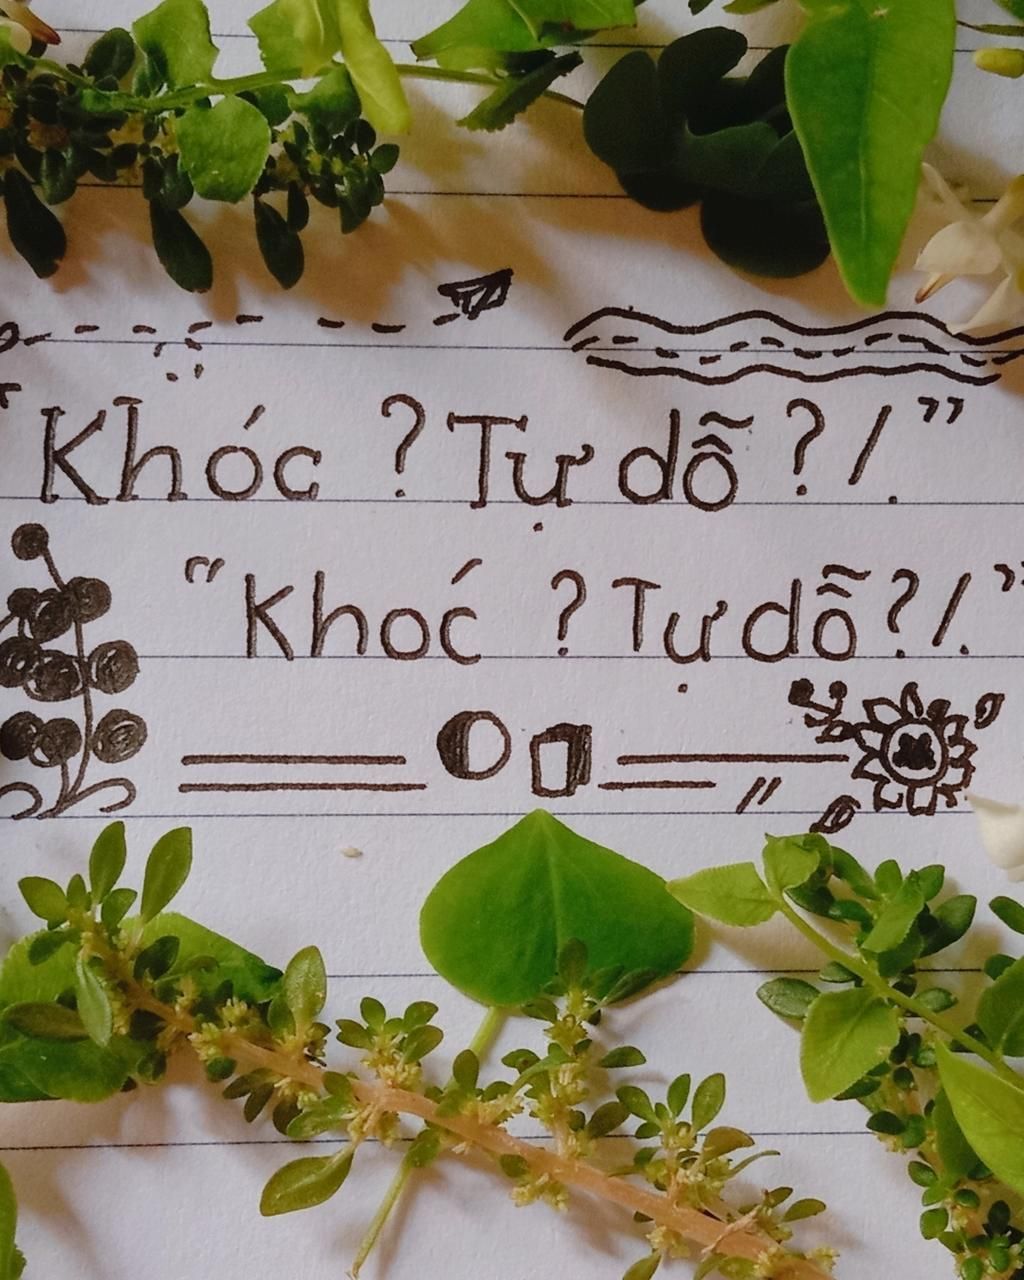 "Khóc ? Tự dỗ ?/."
"Khoć ? Tự dỗ ?/."